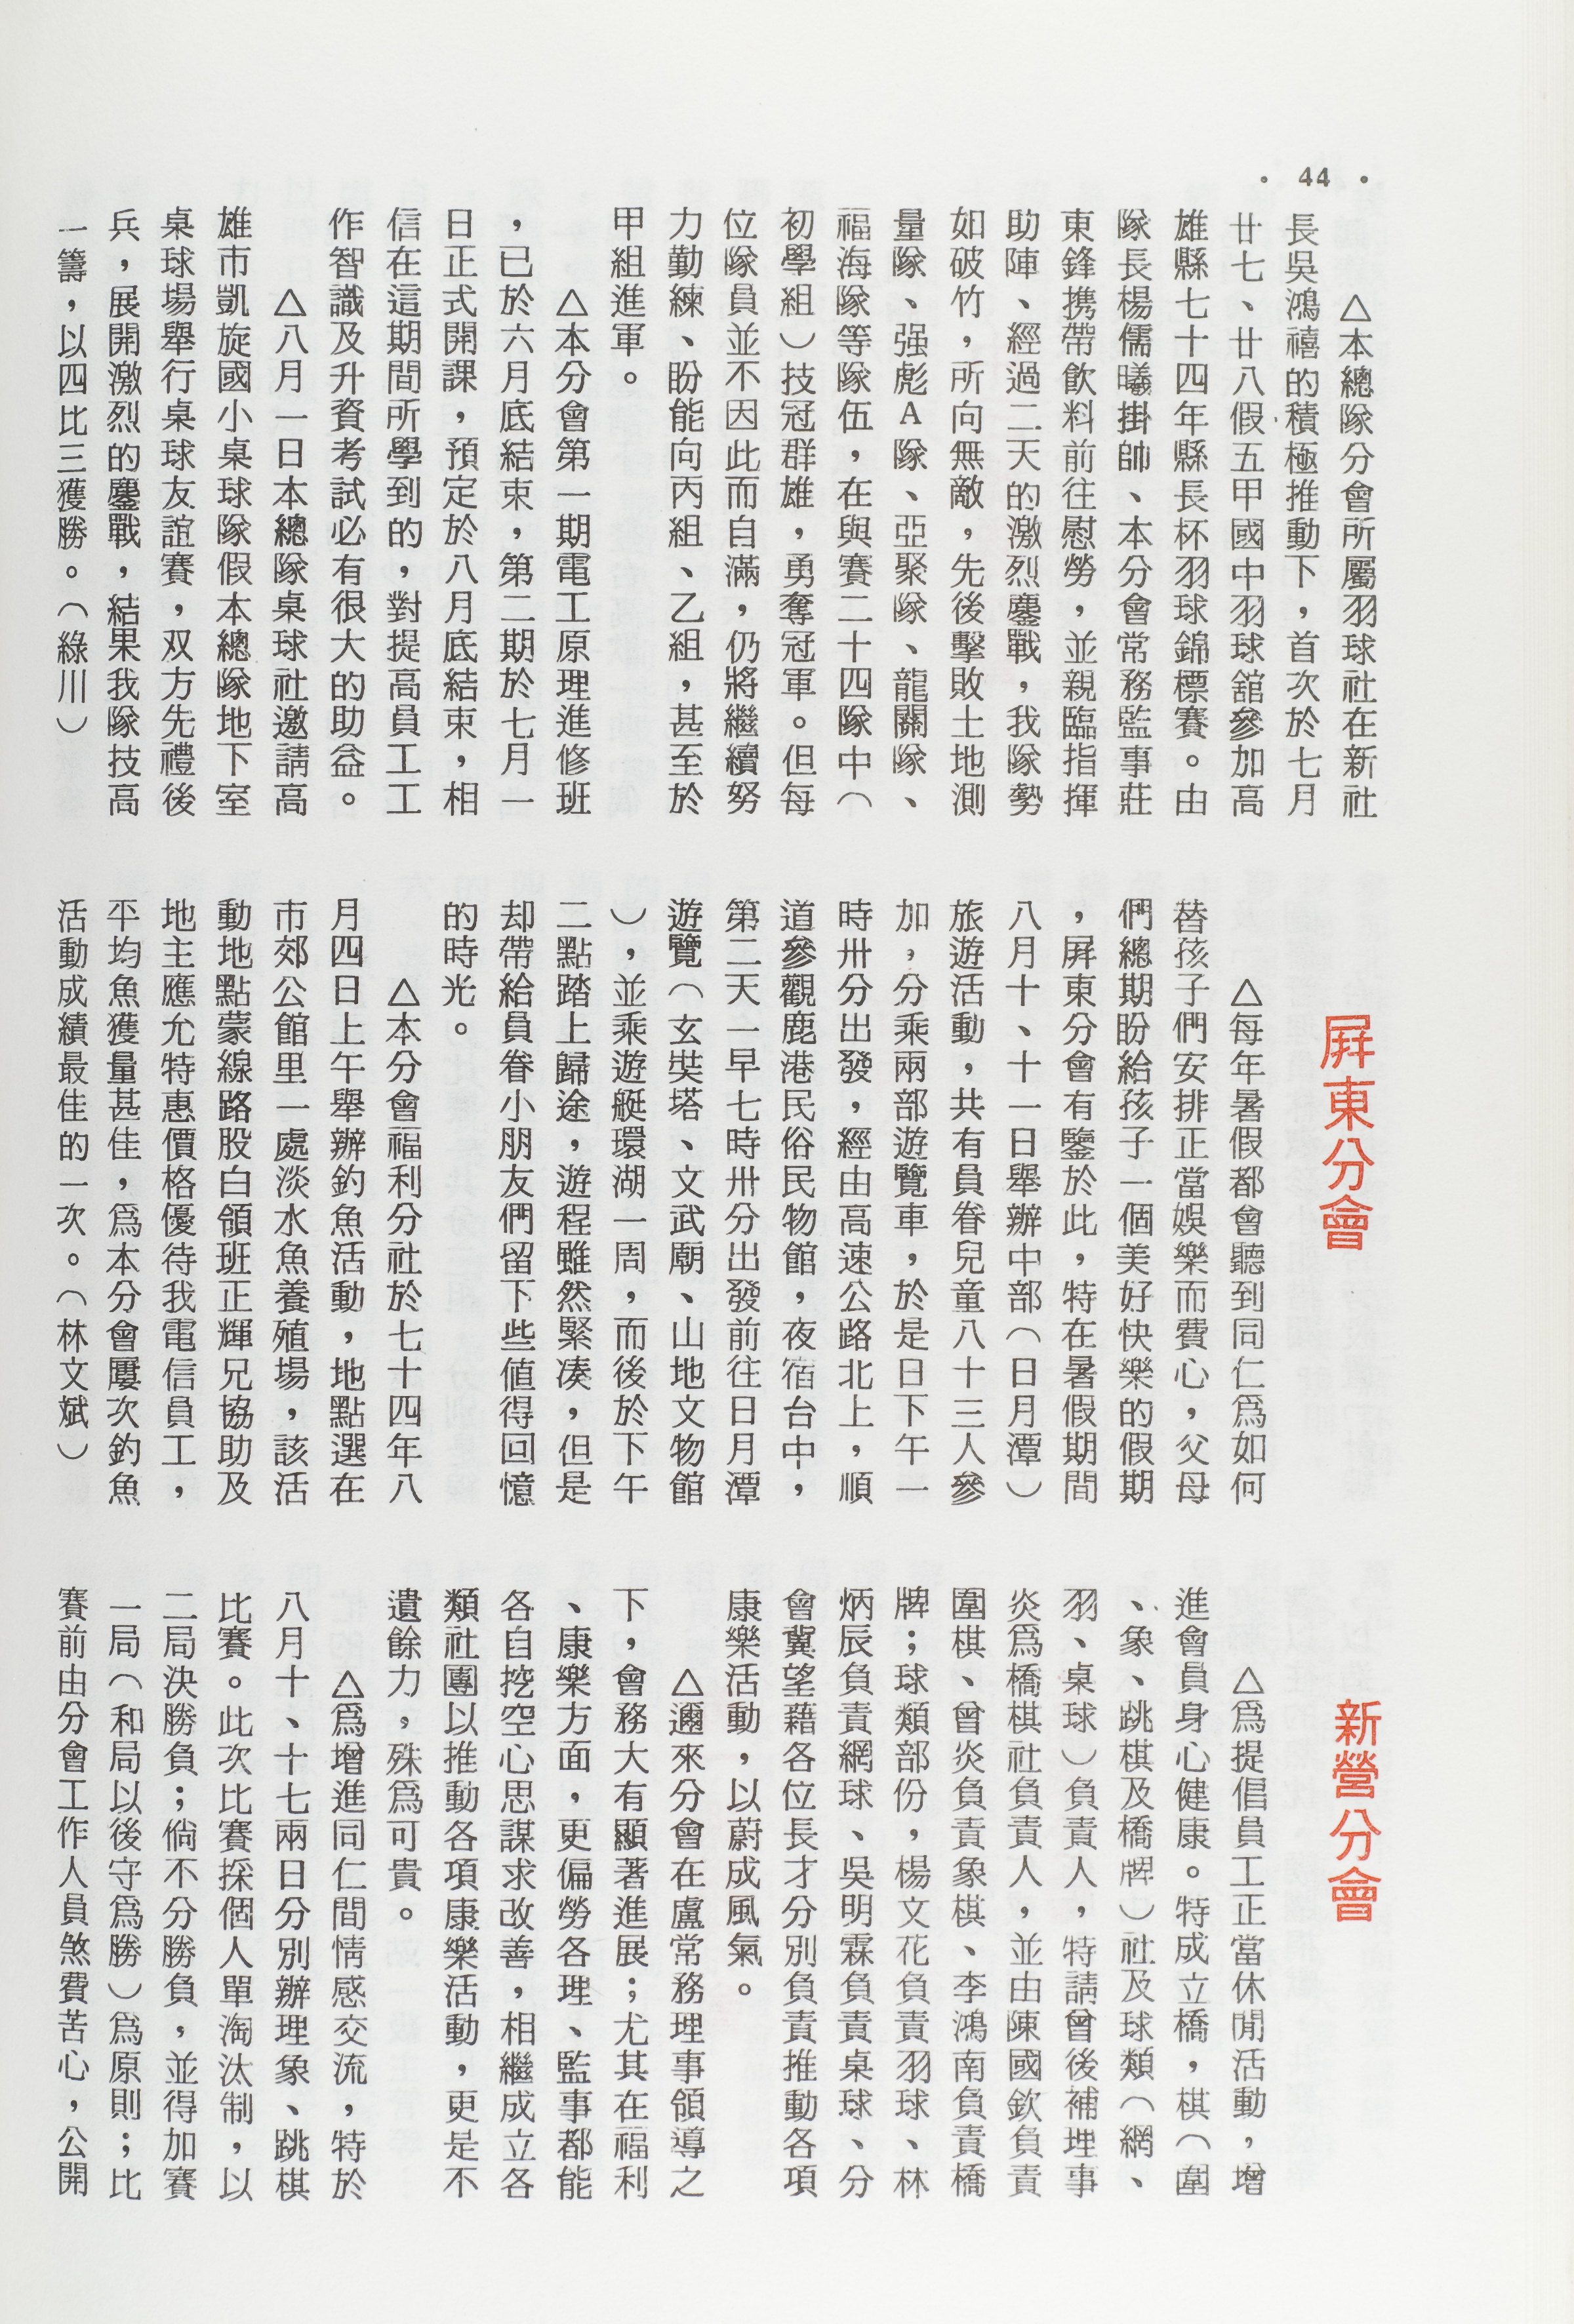 • 44 •
△本總隊分會所屬羽球社在新社
長吳鴻禧的積極推動下，首次於七月
廿七、廿八假五甲國中羽球舘參加高
雄縣七十四年縣長杯羽球錦標賽。由
隊長楊儒曦掛帥、本分會常務監事莊
東鋒携帶飲料前往慰勞，並親臨指揮
助陣、經過二天的激烈鏖戰，我隊勢
如破竹，所向無敵，先後擊敗土地測
量隊、强彪A隊、亞聚隊、龍關隊、
福海隊等隊伍，在與賽二十四隊中（
初學組）技冠群雄，勇奪冠軍。但每
位隊員並不因此而自滿，仍將繼續努
力勤練、盼能向丙組、乙組，甚至於
甲組進軍。
△本分會第一期電工原理進修班
，已於六月底結束，第二期於七月一
日正式開課，預定於八月底結束，相
信在這期間所學到的，對提高員工工
作智識及升資考試必有很大的助益。
△八月一日本總隊桌球社邀請高
雄市凱旋國小桌球隊假本總隊地下室
桌球場舉行桌球友誼賽，双方先禮後
兵，展開激烈的鏖戰，結果我隊技高
一籌，以四比三獲勝。（綠川）
屏東分會
△每年暑假都會聽到同仁爲如何
替孩子們安排正當娛樂而費心，父母
們總期盼給孩子一個美好快樂的假期
，屏東分會有鑒於此，特在暑假期間
八月十、十一日舉辦中部（日月潭）
旅遊活動，共有員眷兒童八十三人參
加，分乘兩部遊覽車，於是日下午一
時卅分出發，經由高速公路北上，順
道參觀鹿港民俗民物館，夜宿台中，
第二天一早七時卅分出發前往日月潭
遊覽（玄奘塔、文武廟、山地文物館
），並乘遊艇環湖一周，而後於下午
二點踏上歸途，遊程雖然緊湊，但是
却帶給員眷小朋友們留下些值得回憶
的時光。
△本分會福利分社於七十四年八
月四日上午舉辦釣魚活動，地點選在
市郊公館里一處淡水魚養殖場，該活
動地點蒙線路股白領班正輝兄協助及
地主應允特惠價格優待我電信員工，
平均魚獲量甚佳，爲本分會屢次釣魚
活動成績最佳的一次。（林文斌）
新營分會
△爲提倡員工正當休閒活動，增
進會員身心健康。特成立橋，棋（圍
、象、跳棋及橋牌）社及球類（網、
羽、桌球）負責人，特請曾後補理事
炎爲橋棋社負責人，並由陳國欽負責
圍棋、曾炎負責象棋、李鴻南負責橋
牌；球類部份，楊文花負責羽球、林
炳辰負責網球、吳明霖負責桌球、分
會冀望藉各位長才分別負責推動各項
康樂活動，以蔚成風氣。
△邇來分會在盧常務理事領導之
下，會務大有顯著進展；尤其在福利
、康樂方面，更偏勞各理、監事都能
各自挖空心思謀求改善，相繼成立各
類社團以推動各項康樂活動，更是不
遺餘力，殊爲可貴。
△爲增進同仁間情感交流，特於
八月十、十七兩日分別辦理象、跳棋
比賽。此次比賽採個人單淘汰制，以
二局決勝負；倘不分勝負，並得加賽
一局（和局以後守爲勝）爲原則；比
賽前由分會工作人員煞費苦心，公開